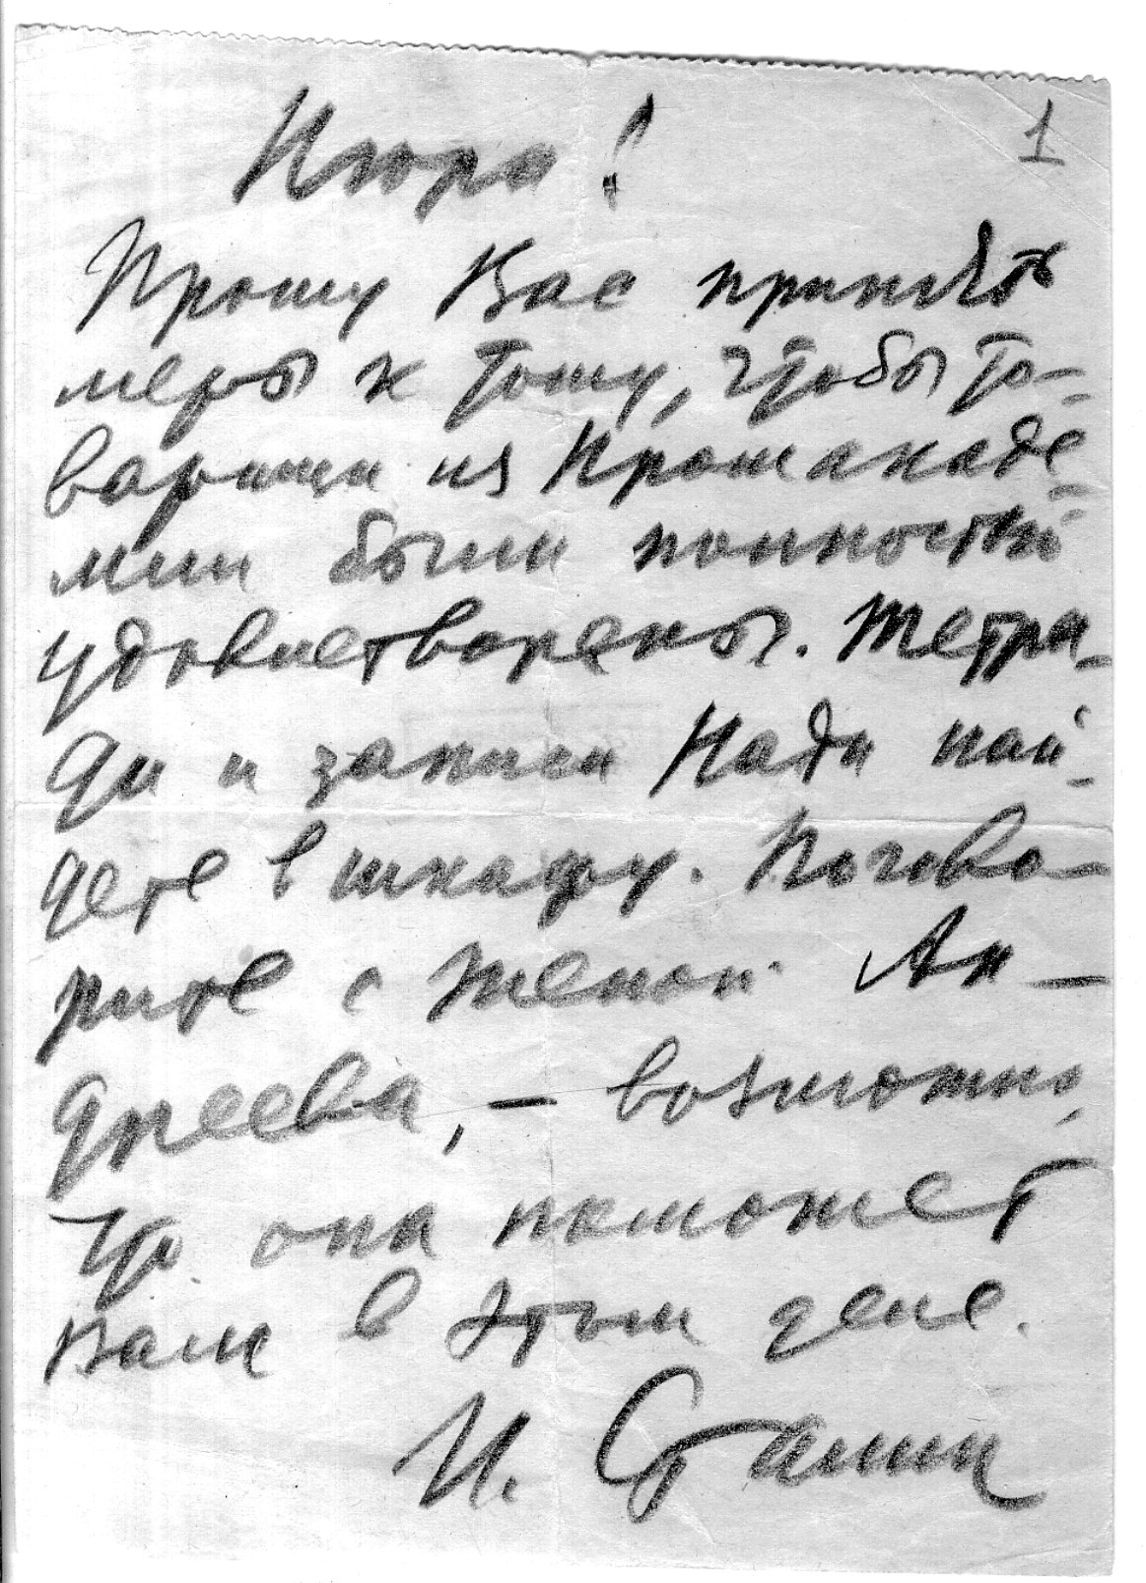 1
Нюра!
Прошу Вас принять
меры к тому, чтобы то-
варищи из Промакаде-
мии были полностью
удовлетворены. Тетра-
ди и записи Нади най-
дете в шкафу. Погово-
рите с женой Ан-
дреева, – возможно,
что она поможет
Вам в этом деле.
И. Сталин